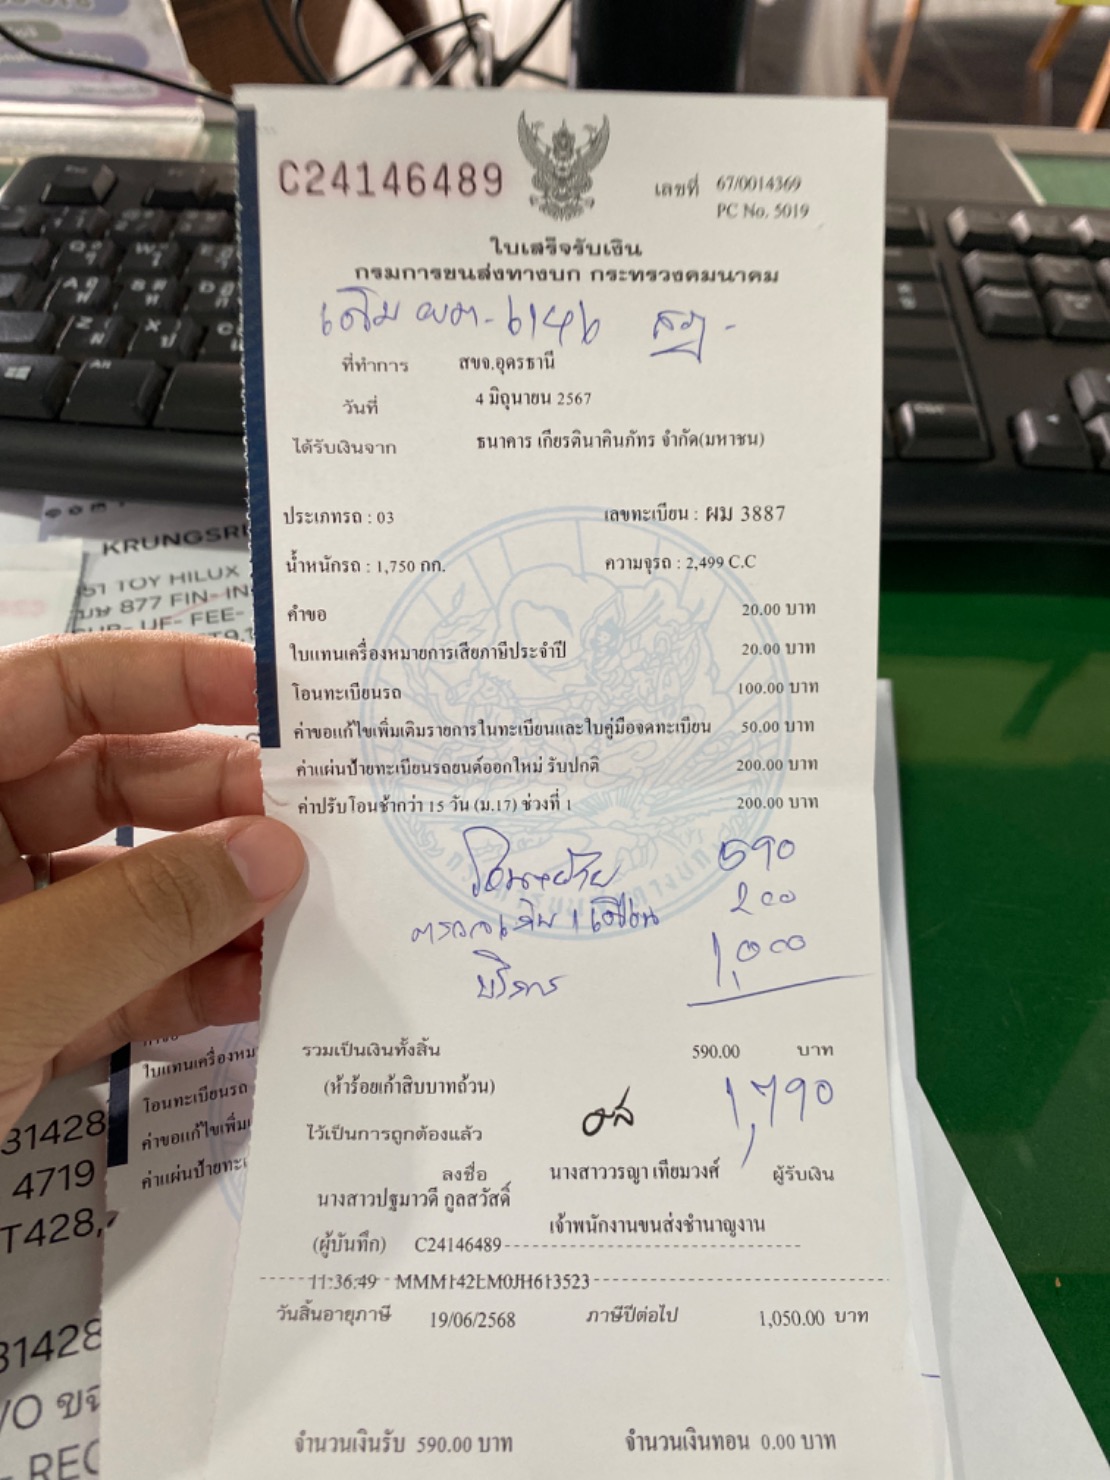 C24146489
เลขที่ 67/0014369
PC No. 5019
ใบเสร็จรับเงิน
กรมการขนส่งทางบก กระทรวงคมนาคม
เดิม ผต-6146
ที่ทำการ สขจ.อุดรธานี
วันที่ 4 มิถุนายน 2567
ได้รับเงินจาก ธนาคาร เกียรตินาคินภัทร จำกัด(มหาชน)
ประเภทรถ : 03 เลขทะเบียน : ผม 3887
น้ำหนักรถ : 1,750 กก. ความจุรถ : 2,499 C.C
คำขอ 20.00 บาท
ใบแทนเครื่องหมายการเสียภาษีประจำปี 20.00 บาท
โอนทะเบียนรถ 100.00 บาท
ค่าขอแก้ไขเพิ่มเติมรายการในทะเบียนและใบคู่มือจดทะเบียน 50.00 บาท
ค่าแผ่นป้ายทะเบียนรถยนต์ออกใหม่ รับปกติ 200.00 บาท
ค่าปรับโอนช้ากว่า 15 วัน (ม.17) ช่วงที่ 1 200.00 บาท
590
200
บริการ 1,000
รวมเป็นเงินทั้งสิ้น 590.00 บาท
(ห้าร้อยเก้าสิบบาทถ้วน)
1,790
ไว้เป็นการถูกต้องแล้ว
ลงชื่อ นางสาววรญา เทียมวงศ์ ผู้รับเงิน
นางสาวปฐมาวดี กูลสวัสดิ์
เจ้าพนักงานขนส่งชำนาญงาน
(ผู้บันทึก) C24146489
11:36:49 MMM142LM0JH613523
วันสิ้นอายุภาษี 19/06/2568 ภาษีปีต่อไป 1,050.00 บาท
จำนวนเงินรับ 590.00 บาท จำนวนเงินทอน 0.00 บาท
KRUNGSRI
TOY HILUX
877 FIN-IN
UF- FEE-
ใบแทนเครื่องหม
โอนทะเบียนรถ
ค่าขอแก้ไขเพิ่ม
ค่าแผ่นป้ายทะเ
31428
4719
T428,
31428